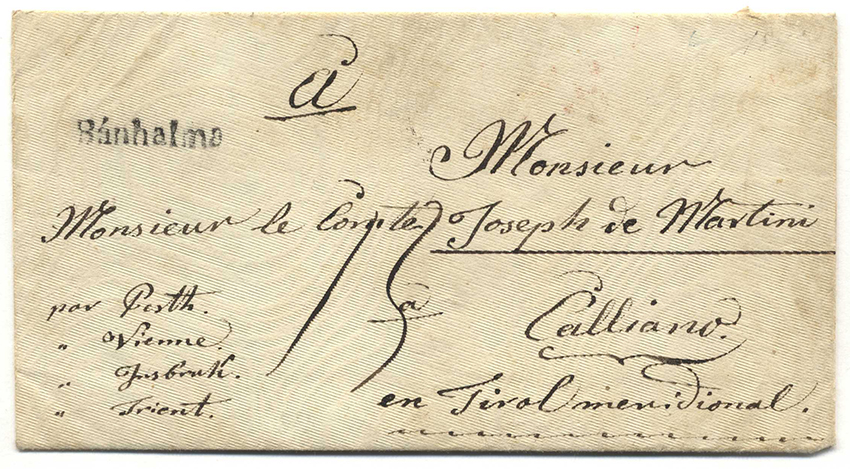 A
Bánhalma
Monsieur
Monsieur le Comte Joseph de Martini
15
par Pesth.
„ Vienne.
„ Insbruk.
„ Trient.
a Calliano.
en Tirol meridional.